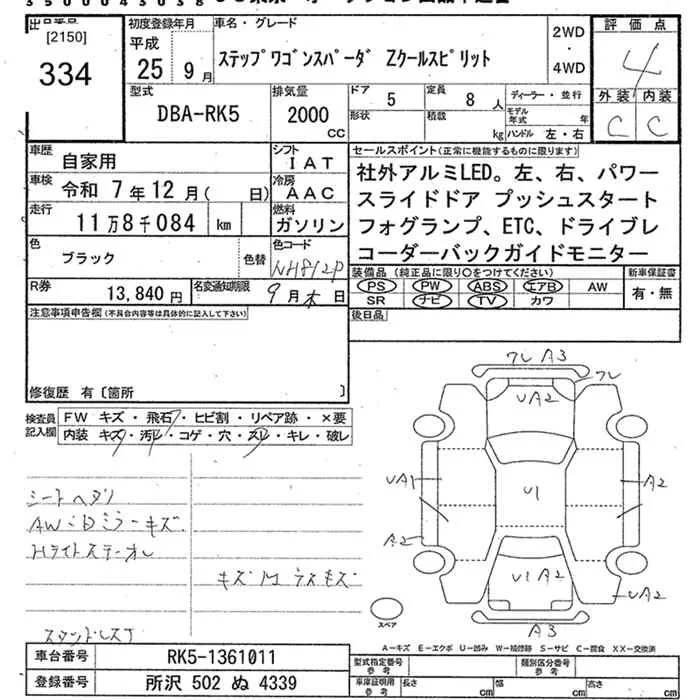 出品番号
[2150]
334
初度登録年月
平成
25年 9月
車名・グレード
ステップワゴンスパーダ Zクールスピリット
2WD
・
4WD
評価点
4
外装 内装
C C
型式
DBA-RK5
排気量
2000
CC
ドア
5
定員
8人
ディーラー・並行
形状
積載
kg
モデル年式 年
ハンドル 左・右
車歴
自家用
シフト
IAT
車検
令和 7年12月( 日)
冷房
AAC
走行
11万8千084 km
燃料
ガソリン
色
ブラック
色替
色コード
NH812P
R券
13,840円
名変通知期限
9月末日
セールスポイント(正常に機能するものに限ります)
社外アルミLED。左、右、パワー
スライドドア プッシュスタート
フォグランプ、ETC、ドライブレ
コーダーバックガイドモニター
装備品 (純正品に限り○をつけてください)
PS PW ABS エアB AW
SR ナビ TV カワ
新車保証書
有・無
後日品
注意事項申告欄(不具合内容等は具体的に記入して下さい)
修復歴 有〔箇所 〕
検査員
記入欄
FW キズ・飛石・ヒビ割・リペア跡・×要
内装 キズ・汚レ・コゲ・穴・スレ・キレ・破レ
シートヘタリ
AW・白ミラーキズ
Hライトステーオレ
キズM ラスモズ
ワレ A3
ワレ
UA2
UA1
U1
A2
A2
U1 A2
UA2
A3
スペア
A-キズ E-エクボ U-凹み W-補修跡 S-サビ C-腐食 XX-交換済
車台番号
RK5-1361011
登録番号
所沢 502 ぬ 4339
型式指定番号
参考
類別区分番号
参考
車庫証明用
参考
長さ cm
幅 cm
高さ cm